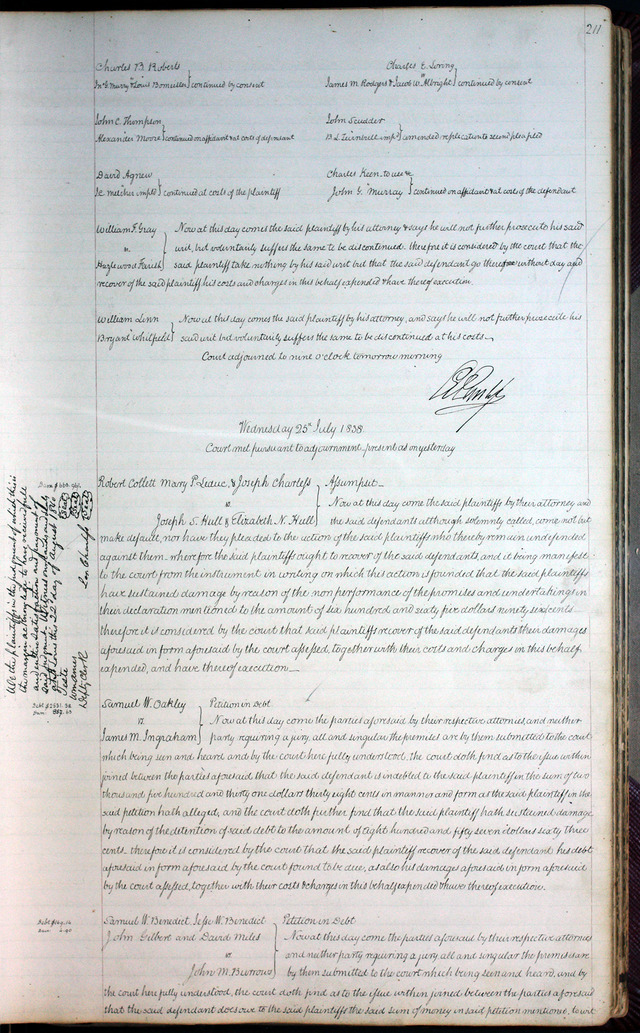 211
Charles B. Roberts
Jn. G. Murry & Louis Bomeister } continued by consent
Charles E. Loring
vs
James M. Rodgers & Jacob W. Albright } continued by consent
John C. Thompson
Alexander Moore } continued on affidavit & at costs of defendant
John Scudder
B. L. Turnbull impd } amended replication to second plea filed
David Agnew
Melcher impld } continued at costs of the plaintiff
Charles Keen to use &
John G. Murray } continued on affidavit & at costs of the defendant
William F. Gray
vs.
Hazlewood Farish
Now at this day comes the said plaintiff by his attorney & says he will not further prosecute his said
writ, but voluntarily suffers the same to be discontinued. therefore it is considered by the court that the
said plaintiff take nothing by his said writ but that the said defendant go therefore without day and
recover of the said plaintiff his costs and charges in this behalf expended & have thereof execution.
William Linn
Bryant Whitfield
Now at this day comes the said plaintiff by his attorney, and says he will not further prosecute his
said writ but voluntarily suffers the same to be discontinued at his costs
Court adjourned to nine o'clock tomorrow morning
Wednesday 25th July 1838.
Court met pursuant to adjournment present as on yesterday
Robert Collett Mary P. Leduc, & Joseph Charless
vs.
Joseph S. Hull & Elizabeth N. Hull
Assumpsit
Now at this day come the said plaintiffs by their attorney and
the said defendants although solemnly called, come not but
make default, nor have they pleaded to the action of the said plaintiffs who thereby remain undefended
against them. wherefore the said plaintiffs ought to recover of the said defendants, and it being manifest
to the court from the instrument in writing on which this action is founded that the said plaintiffs
have sustained damage by reason of the non performance of the promises and undertakings in
their declaration mentioned to the amount of six hundred and sixty five dollars ninety six cents
therefore it is considered by the court that said plaintiffs recover of the said defendants their damages
aforesaid in form aforesaid by the court assessed, together with their costs and charges in this behalf
expended, and have thereof execution
We the plaintiffs in the judgment of which this is
the margin acknowledge to have received full
and entire satisfaction and payment of
said judgment. Witness our hands and seals
this 22d day of August 1840
Teste
Depty Clerk
Jos. Charless
Seal
Seal
Seal
Debt $2531.38
Dam. 857.63
Samuel W. Oakley
vs.
James M. Ingraham
Petition in Debt
Now at this day come the parties aforesaid by their respective attornies, and neither
party requiring a jury, all and singular the premises are by them submitted to the court
which being seen and heard and by the court here fully understood, the court doth find as to the issue within
joined between the parties aforesaid that the said defendant is indebted to the said plaintiff in the sum of two
thousand five hundred and thirty one dollars thirty eight cents in manner and form as the said plaintiff in the
said petition hath alleged, and the court doth further find that the said plaintiff hath sustained damage
by reason of the detention of said debt to the amount of eight hundred and fifty seven dollars sixty three
cents. therefore it is considered by the court that the said plaintiff recover of the said defendant his debt
aforesaid in form aforesaid by the court found to be due, as also his damages aforesaid in form aforesaid
by the court assessed, together with their costs & charges in this behalf expended & have thereof execution.
Samuel W. Benedict, Jesse W. Benedict
John Gilbert and David Miles
vs
John M. Burrows
Petition in Debt
Now at this day come the parties aforesaid by their respective attornies
and neither party requiring a jury all and singular the premises are
by them submitted to the court which being seen and heard, and by
the court here fully understood, the court doth find as to the issue within joined between the parties aforesaid
that the said defendant does owe to the said plaintiffs the said sum of money in said petition mentioned, to wit